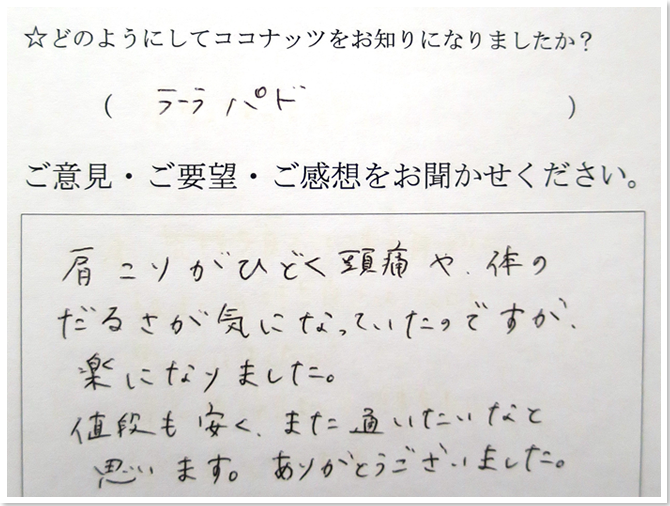 ☆どのようにしてココナッツをお知りになりましたか？
（ ララパド ）
ご意見・ご要望・ご感想をお聞かせください。
肩こりがひどく頭痛や、体の
だるさが気になっていたのですが、
楽になりました。
値段も安く、また通いたいなと
思います。ありがとうございました。